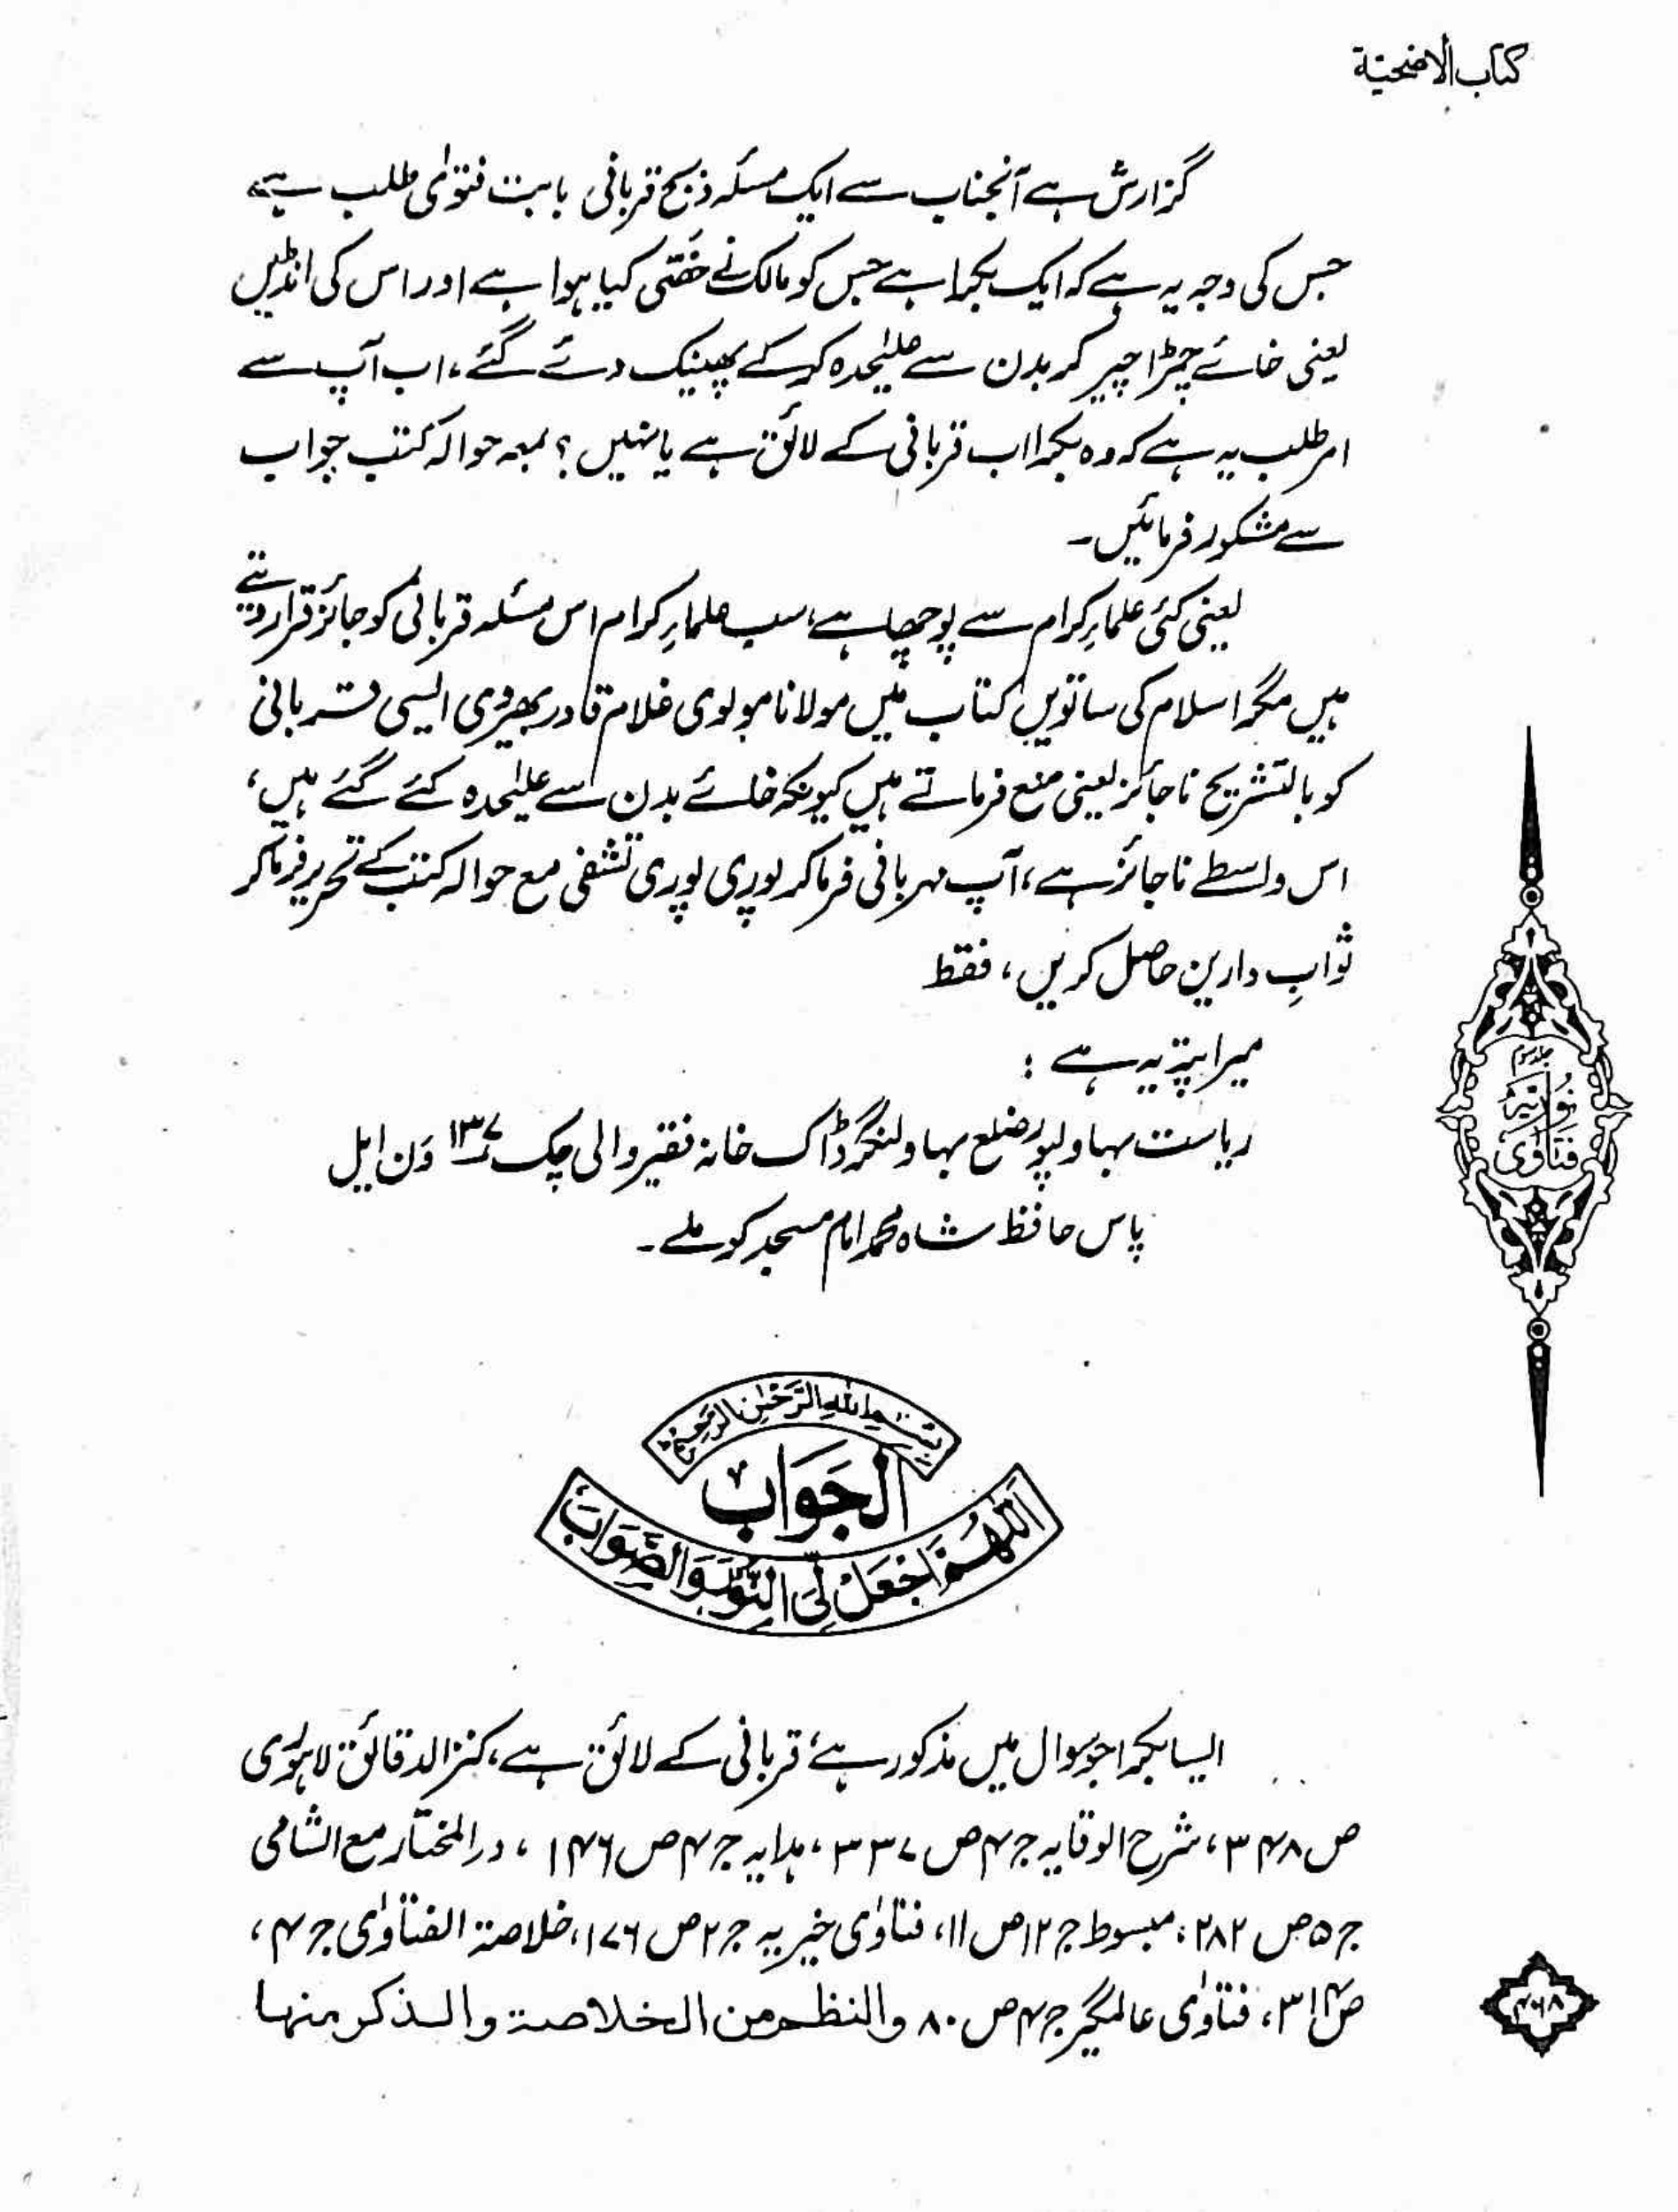 کتاب الاضحیة
گزارش ہے آنجناب سے ایک مسئلہ ذبح قربانی بابت فتوٰی طلب ہے
جس کی وجہ یہ ہے کہ ایک بکرا ہے جس کو مالک نے خصّی کیا ہوا ہے اور اس کی انڈیں
یعنی خائے چمڑا چیر کر بدن سے علیٰحدہ کر کے پھینک دئے گئے، اب آپ سے
امر طلب یہ ہے کہ وہ بکرا اب قربانی کے لائق ہے یا نہیں؟ بمعہ حوالہ کتب جواب
سے مشکور فرمائیں۔
یعنی کئی علماءِ کرام سے پوچھا ہے، سب علماءِ کرام اس مسئلہ قربانی کو جائز قرار دیتے
ہیں مگر اسلام کی ساتویں کتاب میں مولانا مولوی غلام قادر بھیروی ایسی قربانی
کو بالتشریح ناجائز یعنی منع فرماتے ہیں کیونکہ خائے بدن سے علیٰحدہ کئے گئے ہیں،
اس واسطے ناجائز ہے، آپ مہربانی فرما کر پوری پوری تشفی مع حوالہ کتب کے تحریر فرما کر
ثوابِ دارین حاصل کریں، فقط
میرا پتہ یہ ہے :
ریاست بہاولپور ضلع بہاولنگر ڈاک خانہ فقیر والی چک ۱۳۷ وَن ایل
پاس حافظ شاہ محمد امام مسجد کو ملے۔
جلد سوم
فتاوٰی نوریہ
بسم اللہ الرحمٰن الرحیم
الجواب
اللّٰھم اجعل لی النور والصواب
ایسا بکرا جو سوال میں مذکور ہے، قربانی کے لائق ہے، کنز الدقائق لاہوری
ص ۳۴۸، شرح الوقایہ ج ۴ ص ۳۳۷، ہدایہ ج ۴ ص ۱۴۶، در المختار مع الشامی
ج ۵ ص ۲۸۲، مبسوط ج ۱۲ ص ۱۱، فتاوٰی خیریہ ج ۲ ص ۱۷۶، خلاصۃ الفتاوٰی ج ۴،
ص ۳۱۴، فتاوٰی عالمگیر ج ۴ ص ۸۰ والنظم من الخلاصۃ والذکر منہا
۴۶۸